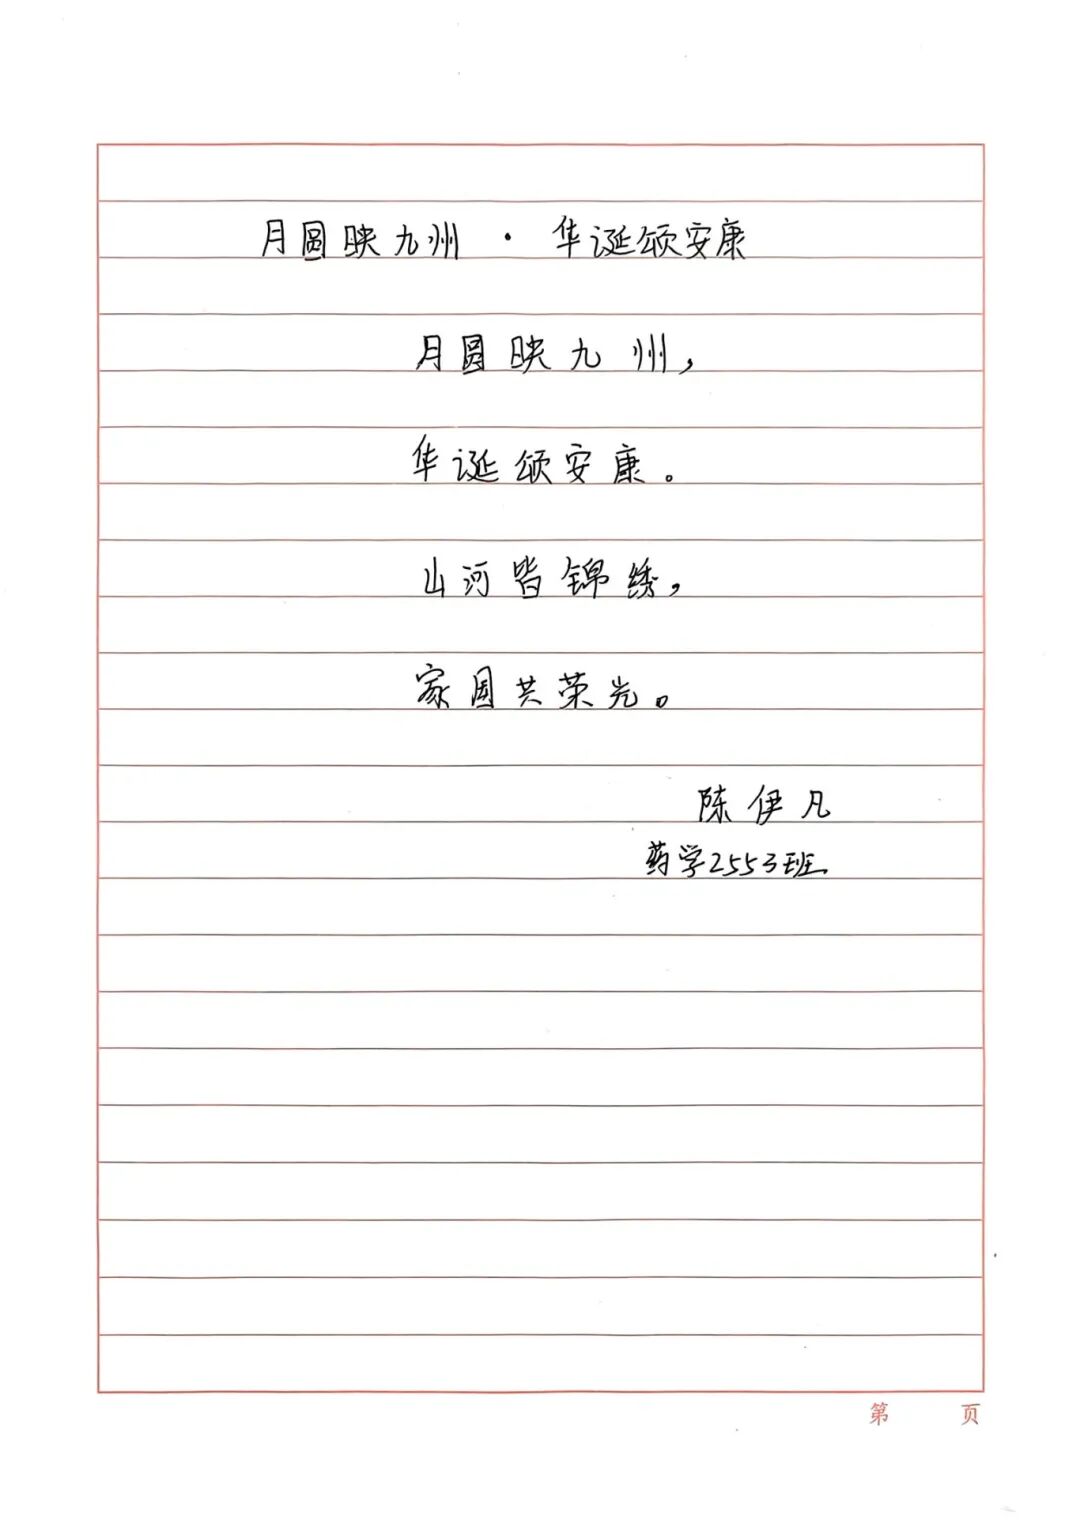 月圆映九州 · 华诞颂安康
月圆映九州,
华诞颂安康。
山河皆锦绣,
家国共荣光。
陈伊凡
药学2553班
第 页